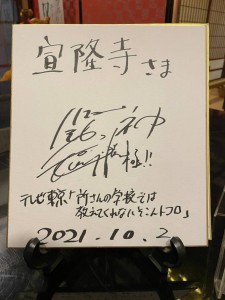 宣隆寺さま
極!!
テレビ東京「所さんの学校では
教えてくれないそこんトコロ」
2021.10.2